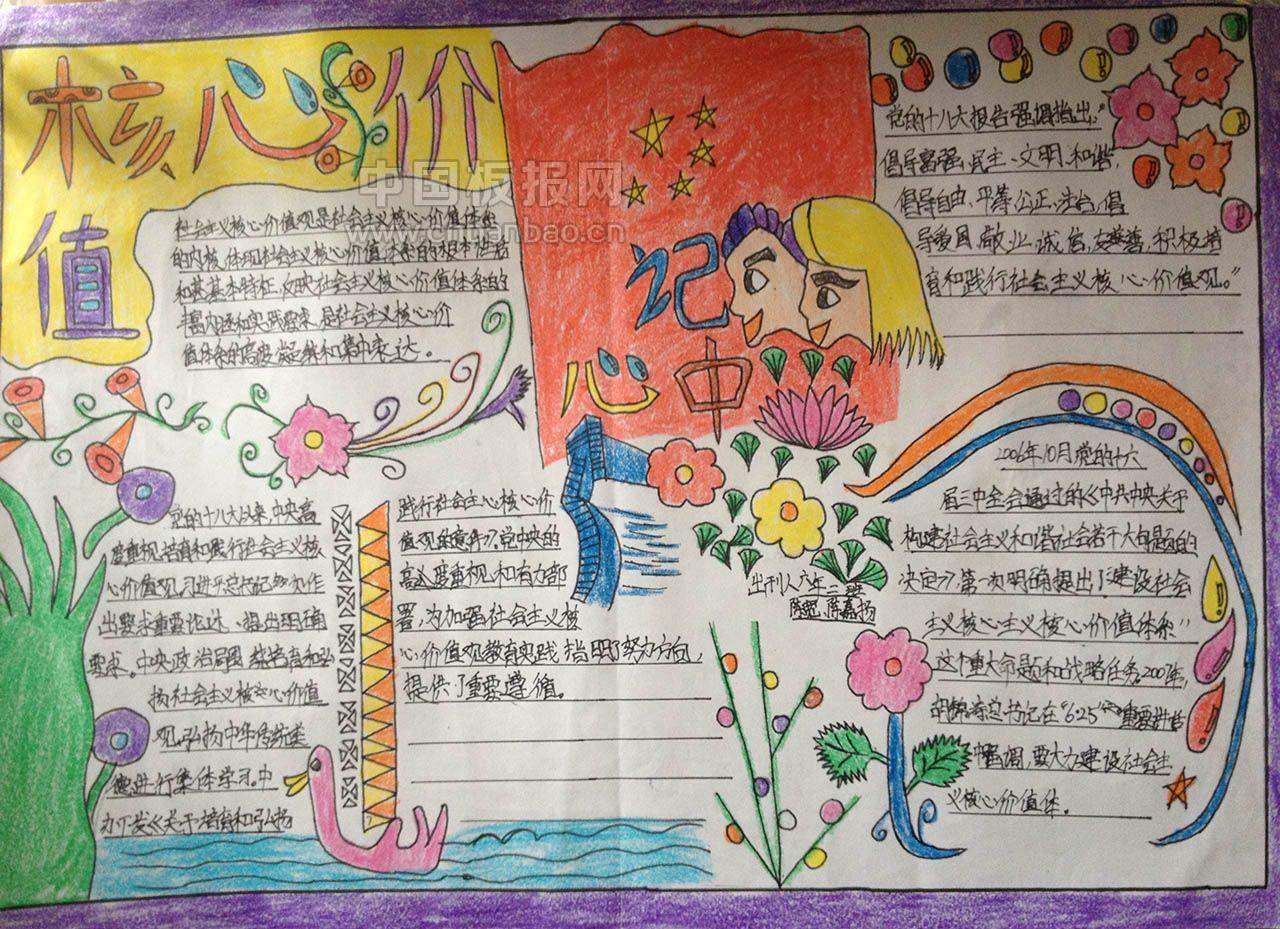 核心价
值
记
心中
中国板报网
chuanbao.cn
社会主义核心价值观是社会主义核心价值体系
的内核,体现社会主义核心价值体系的根本性质
和基本特征,反映社会主义核心价值体系的
丰富内涵和实践要求,是社会主义核心价
值体系的高度凝练和集中表达。
党的十八大报告强调指出:“
倡导富强、民主、文明、和谐,
倡导自由、平等、公正、法治,倡
导爱国、敬业、诚信、友善,积极培
育和践行社会主义核心价值观。”
党的十八大以来,中央高
度重视培育和践行社会主义核
心价值观。习进平总书记多次作
出要求重要论述、提出明确
要求。中央政治局围绕培育和弘
扬社会主义核心价值
观、弘扬中华传统美
德进行集体学习。中
办下发《关于培育和弘扬
践行社会主心核心价
值观的意件》。党中央的
高度重视和有力部
署,为加强社会主义核
心价值观教育实践指明了努力方向,
提供了重要遵循。
出刊人六年二班
陈嘉扬
2006年10月党的十六
届三中全会通过的《中共中央关于
构建社会主义和谐社会若干大问题的
决定》,第一次明确提出了“建设社会
主义核心主义核心价值体系”
这个重大命题和战略任务。2007年,
胡锦涛总书记在“625”重要讲话
中强调,要大力建设社会主
义核心价值体。